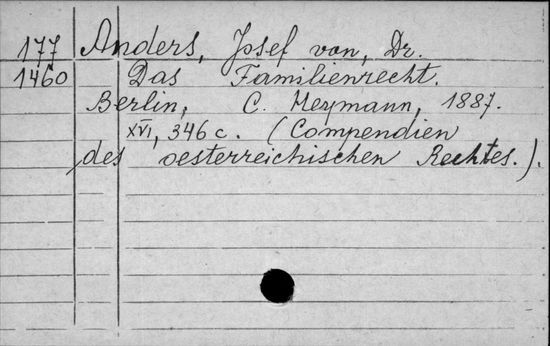 177 Anders, Josef von, Dr.
1460 Das Familienrecht.
Berlin, C. Heymann, 1887.
XVI, 346 c. (Compendien
des oesterreichischen Rechtes.).